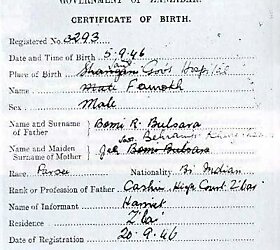 GOVERNMENT OF ZANZIBAR
CERTIFICATE OF BIRTH.
Registered No 3293
Date and Time of Birth 5.9.46
Place of Birth Govt Hospital
Name
Sex Male
Name and Surname of Father Bomi R. Bulsara
Name and Maiden Surname of Mother Jer Bomi Bulsara
Race Parsee Nationality Br Indian
Rank or Profession of Father Cashier High Court Z'bar
Name of Informant
Residence Z'bar
Date of Registration 20.9.46